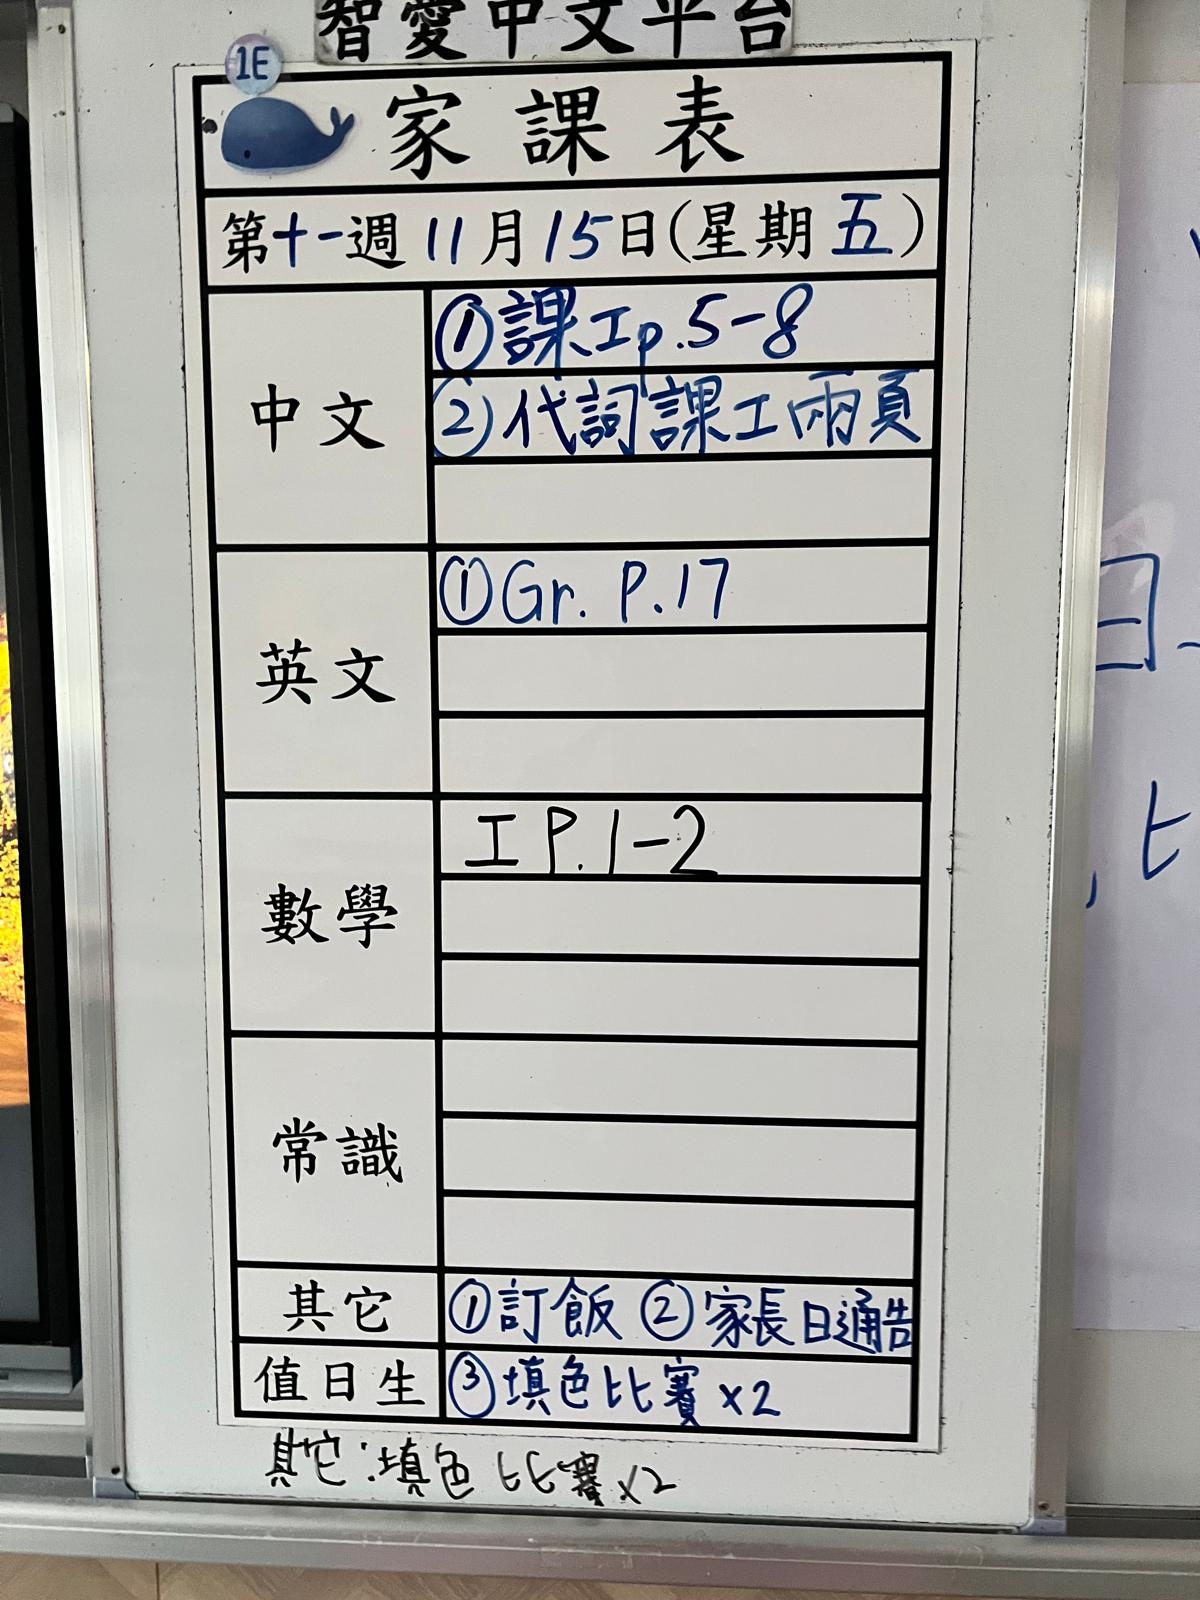 智愛中文平台
1E
家課表
第十一週 11月15日(星期五)
中文
①課工p.5-8
②代詞課工兩頁
英文
①Gr. P.17
數學
工P.1-2
常識
其它
①訂飯 ②家長日通告
值日生
③填色比賽x2
其它:填色比賽x2
日、
比